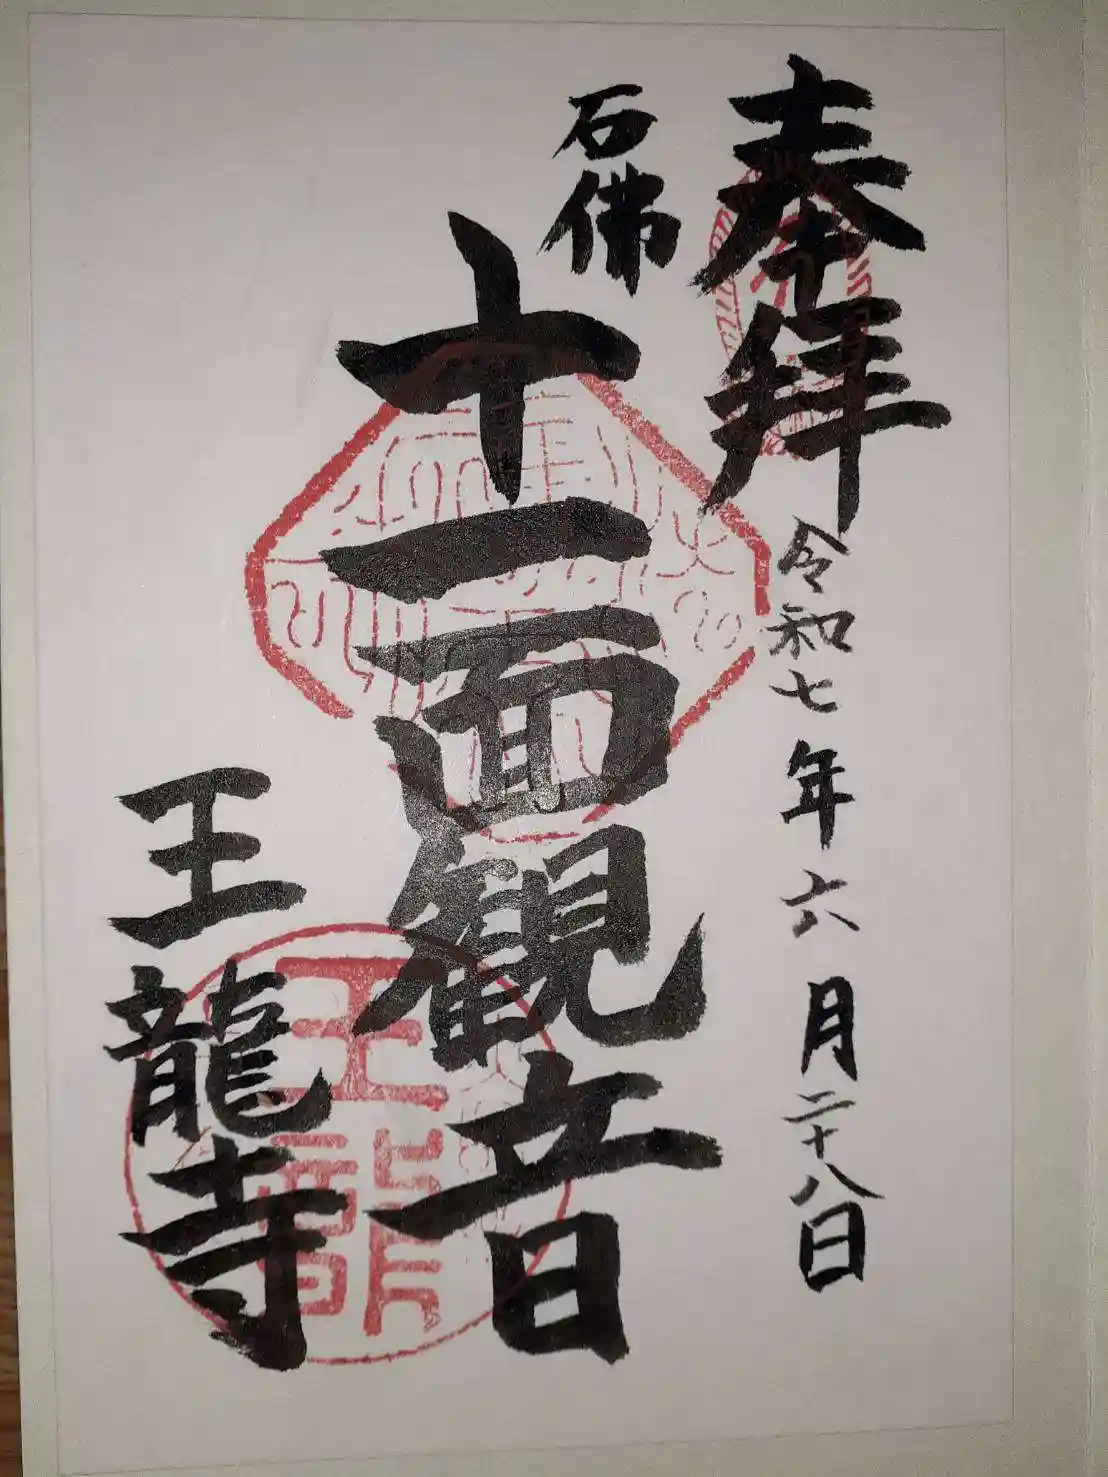 奉拜
令和七年六月二十八日
石佛
十一面観音
王龍寺